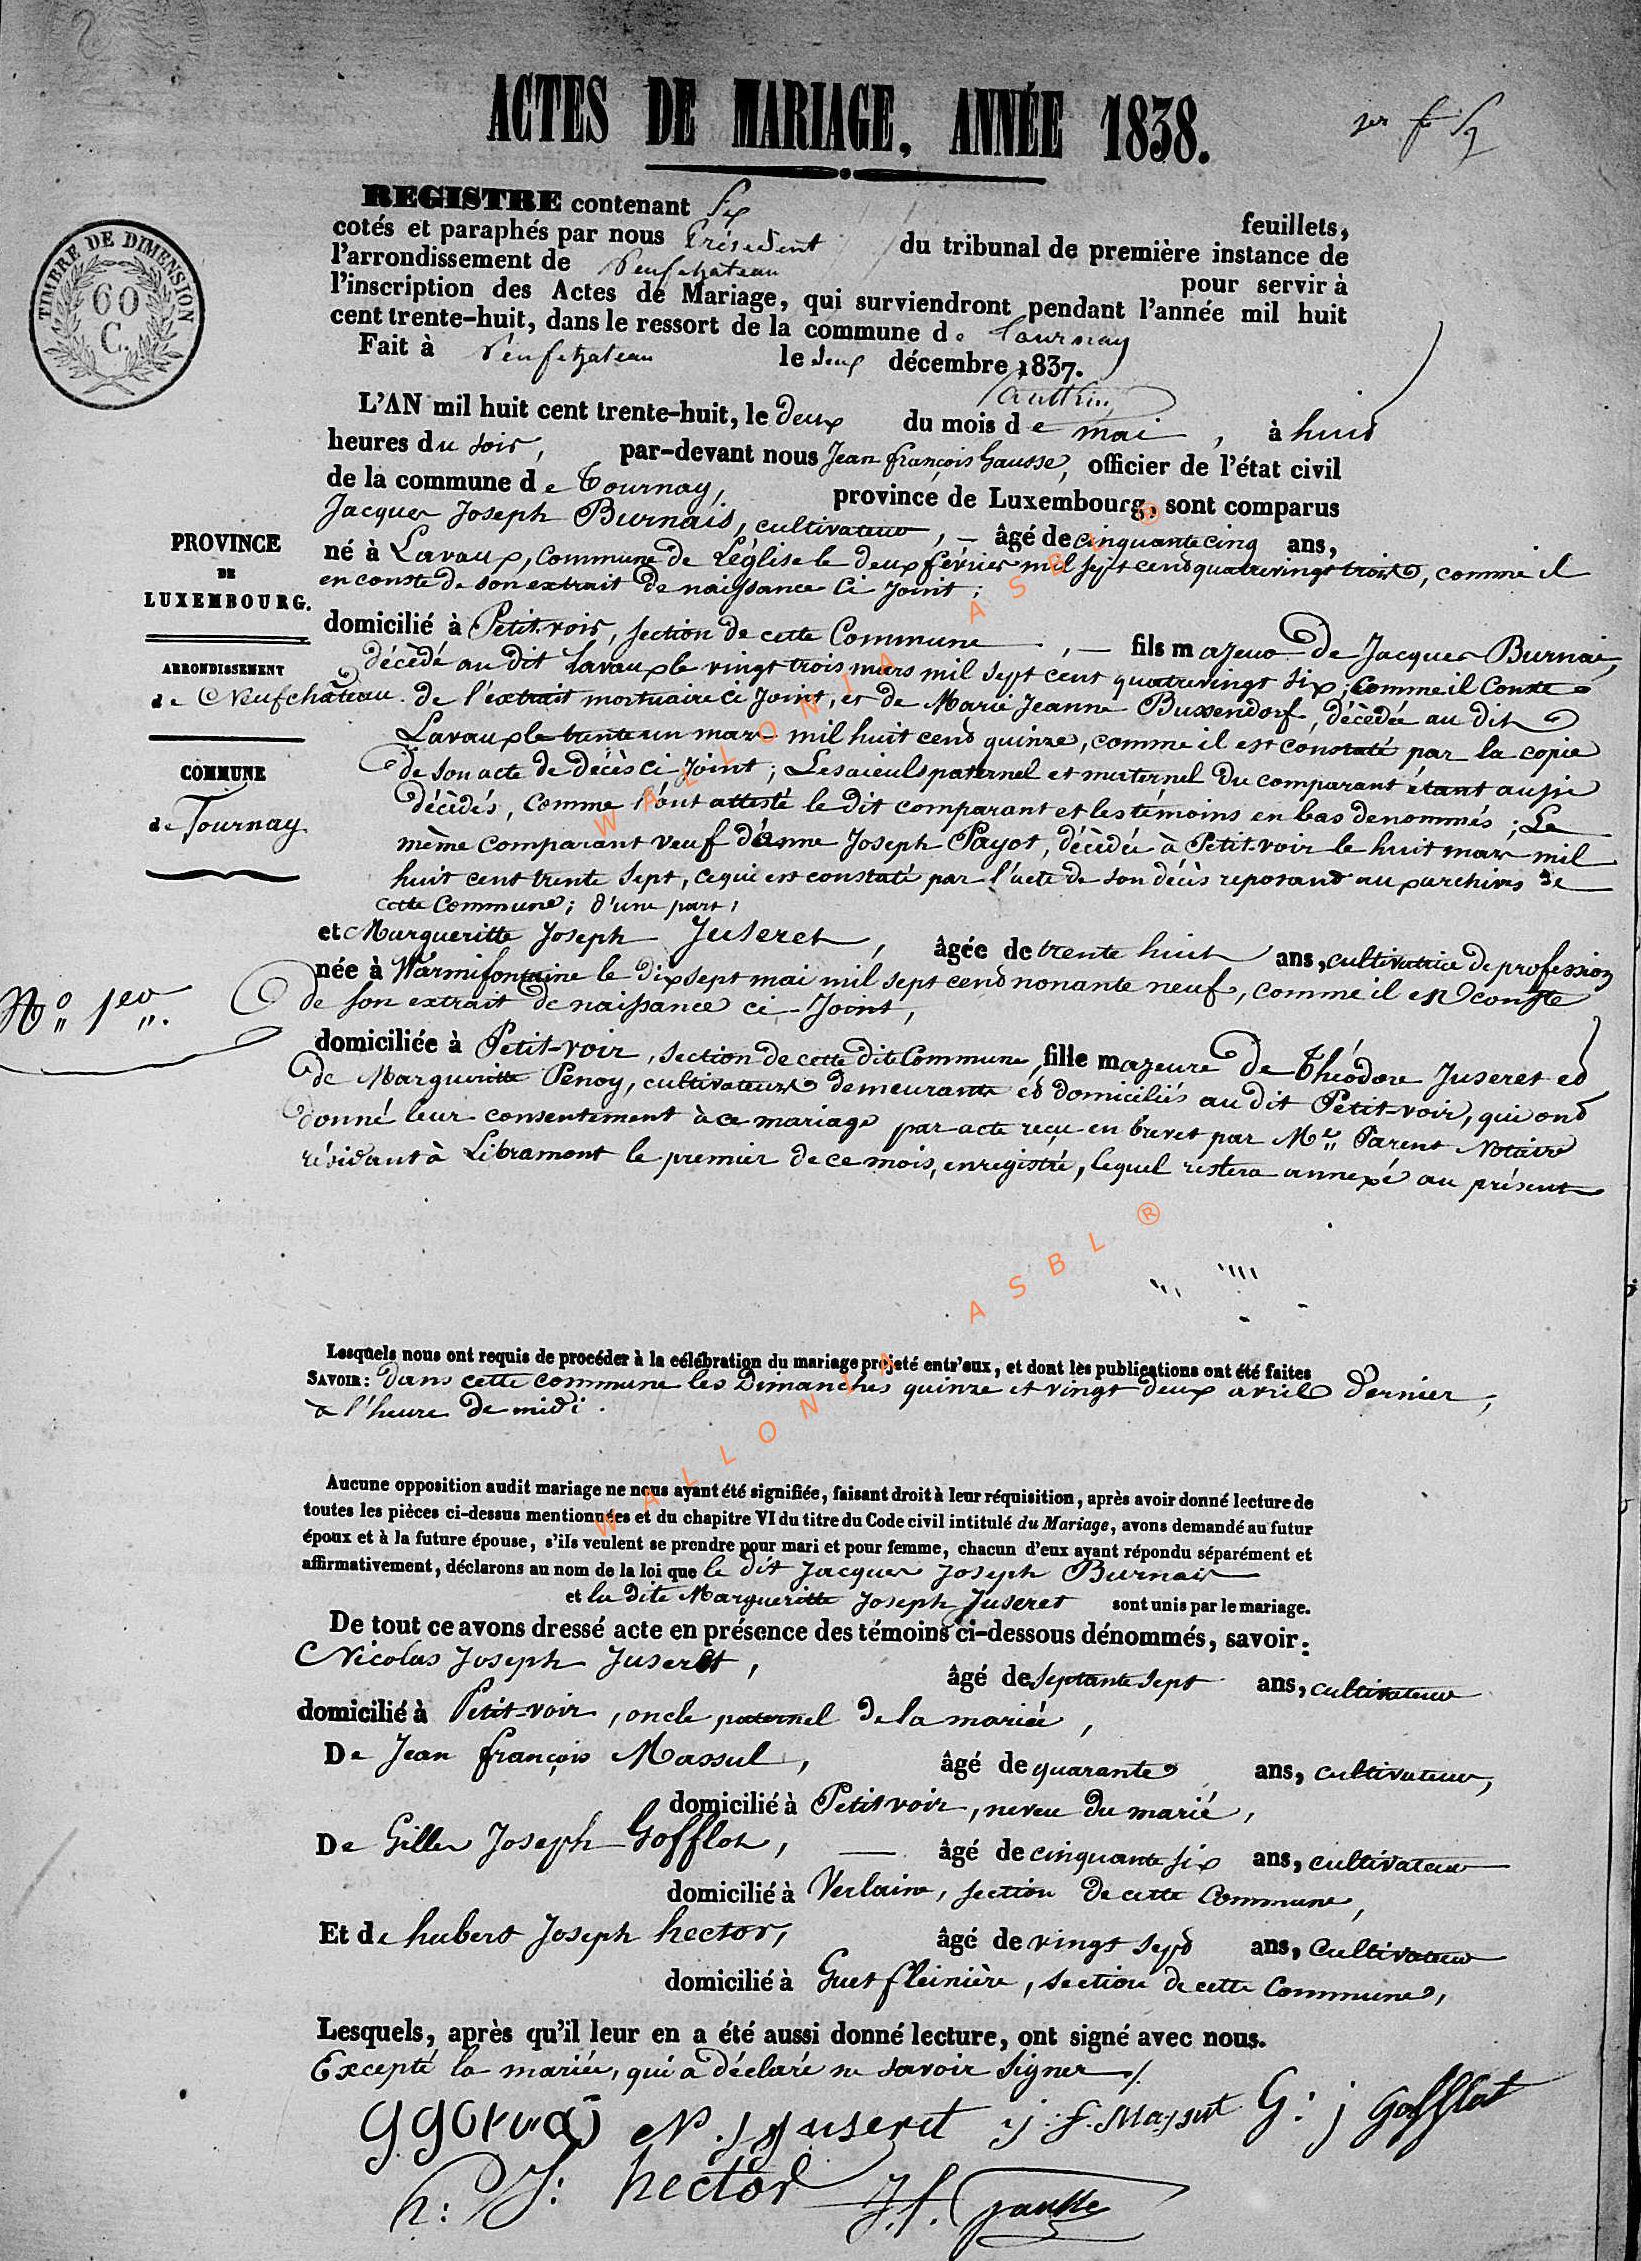 ACTES DE MARIAGE, ANNÉE 1838.
1er f
REGISTRE contenant Six feuillets,
cotés et paraphés par nous Président du tribunal de première instance de
l'arrondissement de Neufchateau pour servir à
l'inscription des Actes de Mariage, qui surviendront pendant l'année mil huit
cent trente-huit, dans le ressort de la commune de Tournay
Fait à Neufchateau le deux décembre 1837.
TIMBRE DE DIMENSION
60
C.
L'AN mil huit cent trente-huit, le deux du mois de mai, à huit
heures du soir, par-devant nous Jean françois Gausse, officier de l'état civil
de la commune de Tournay, province de Luxembourg, sont comparus
Jacques Joseph Burnais, cultivateur, — âgé de cinquante cinq ans,
né à Lavaux, commune de Léglise le deux février mil sept cent quatrevingt trois, comme il
en conste de son extrait de naissance ci joint;
domicilié à Petit-voir, section de cette Commune, — fils majeur de Jacques Burnai,
décèdé au dit Lavaux le vingt trois mars mil sept cent quatrevingt six, comme il conste
de l'extrait mortuaire ci joint, et de Marie Jeanne Buxendorf, décèdée au dit
Lavaux le trente un mars mil huit cent quinze, comme il est constaté par la copie
de son acte de décès ci joint; Les aieuls paternel et maternel du comparant étant aussi
décèdés, comme l'ont attesté le dit comparant et les témoins en bas denommés; Le
même comparant veuf d'anne Joseph Payot, décèdée à Petit-voir le huit mars mil
huit cent trente sept, ce qui est constaté par l'acte de son décès reposant aux archives de
cette Commune; d'une part,
PROVINCE
DE
LUXEMBOURG.
ARRONDISSEMENT
de Neufchâteau.
COMMUNE
de Tournay
No 1er
et Margueritte Joseph Juseret, âgée de trente huit ans, cultivatrice de profession
née à Warmifontaine le dix sept mai mil sept cent nonante neuf, comme il est conste
de son extrait de naissance ci-joint,
domiciliée à Petit-voir, section de cette dite Commune, fille majeure de Théodore Juseret et
de Margueritte Penoy, cultivateurs demeurants et domiciliés au dit Petit-voir, qui ont
donné leur consentement à ce mariage par acte reçu en brevet par Me Parent Notaire
résidant à Libramont le premier de ce mois, enregistré, lequel restera annexé au présent
Lesquels nous ont requis de procéder à la célébration du mariage projeté entr'eux, et dont les publications ont été faites
SAVOIR: dans cette commune les Dimanches quinze et vingt deux avril dernier,
à l'heure de midi.
Aucune opposition audit mariage ne nous ayant été signifiée, faisant droit à leur réquisition, après avoir donné lecture de
toutes les pièces ci-dessus mentionnées et du chapitre VI du titre du Code civil intitulé du Mariage, avons demandé au futur
époux et à la future épouse, s'ils veulent se prendre pour mari et pour femme, chacun d'eux ayant répondu séparément et
affirmativement, déclarons au nom de la loi que le dit Jacques Joseph Burnais
et la dite Margueritte Joseph Juseret sont unis par le mariage.
De tout ce avons dressé acte en présence des témoins ci-dessous dénommés, savoir:
Nicolas Joseph Juseret, âgé de septante sept ans, cultivateur
domicilié à Petit-voir, oncle paternel de la mariée,
De Jean françois Massul, âgé de quarante ans, cultivateur,
domicilié à Petitvoir, neveu du marié,
De Gilles Joseph Gofflot, — âgé de cinquante six ans, cultivateur
domicilié à Verlaine, section de cette Commune,
Et de hubert Joseph hector, âgé de vingt sept ans, Cultivateur
domicilié à Guet fleinière, section de cette Commune,
Lesquels, après qu'il leur en a été aussi donné lecture, ont signé avec nous.
Excepté la mariée, qui a déclaré ne savoir signer
N. J Juseret j. f. Massut G: j Gofflot
h: J: hector J. f. Gausse
WALLONIA ASBL ®
WALLONIA ASBL ®